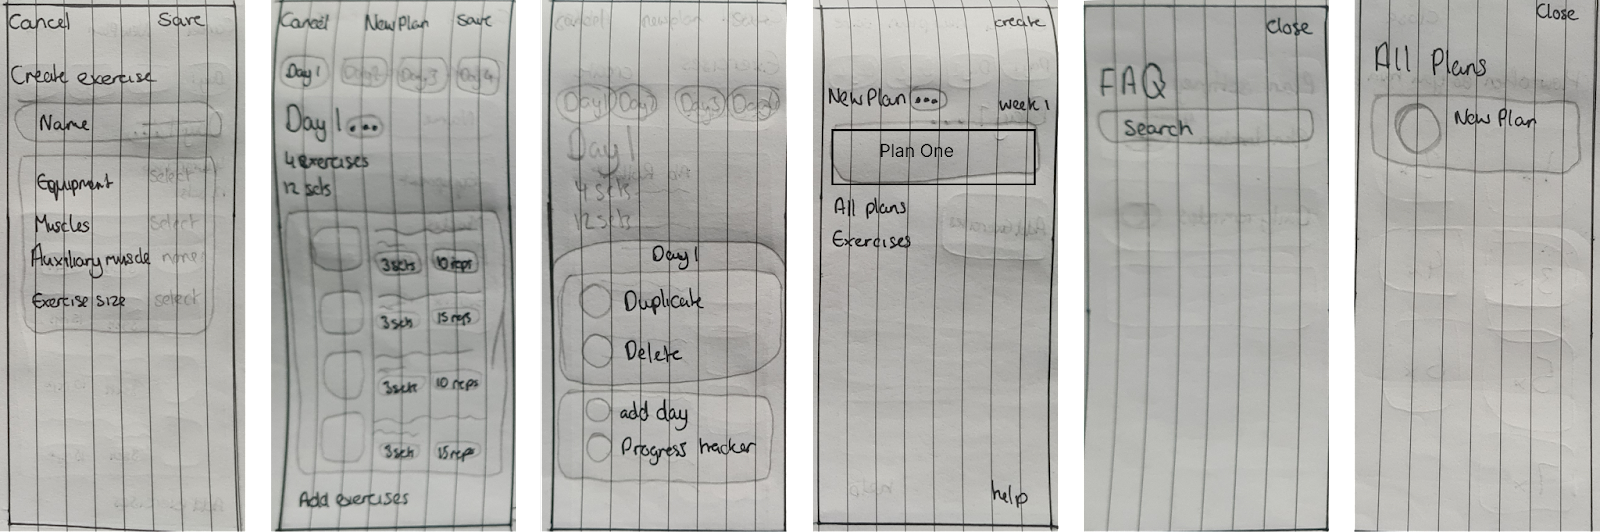 Cancel Save
Create exercise
Name
Equipment select
Muscles select
Auxiliary muscle none
Exercise size select
Cancel New Plan Save
Day 1 Day 2 Day 3 Day 4
Day 1 ...
4 exercises
12 sets
3 sets 10 reps
3 sets 15 reps
3 sets 10 reps
3 sets 15 reps
Add exercises
Cancel new plan Save
Day 1 Day 2 Day 3
Day 1
4 sets
12 sets
Day 1
Duplicate
Delete
add day
Progress tracker
create
New Plan ... week 1
Plan One
All plans
Exercises
help
Close
FAQ
Search
Close
All Plans
New Plan